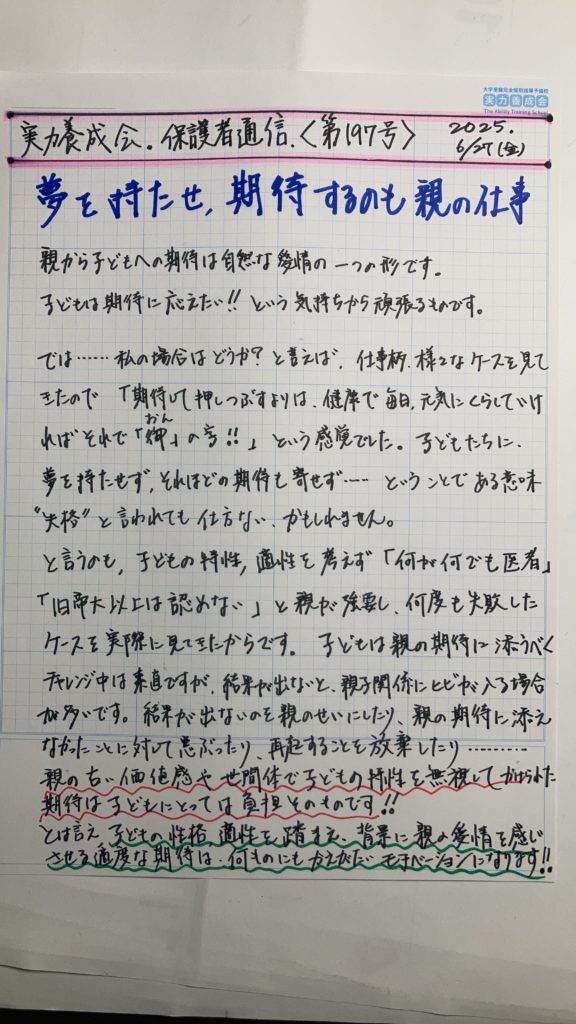 大学受験完全個別指導予備校
実力養成会
The Ability Training School
実力養成会。保護者通信.〈第197号〉 2025. 6/27(金)
夢を持たせ,期待するのも親の仕事
親から子どもへの期待は自然な愛情の一つの形です。
子どもは期待に応えたい!!という気持ちから頑張るものです。
では……私の場合はどうか?と言えば、仕事柄、様々なケースを見て
きたので「期待して押しつぶすよりは、健康で毎日、元気にくらしていけ
ればそれで「御(おん)」の字!!」という感覚でした。子どもたちに、
夢を持たせず,それほどの期待も寄せず……ということである意味
"失格"と言われても仕方ない、かもしれません。
と言うのも,子どもの特性,適性を考えず「何が何でも医者」
「旧帝大以上は認めない」と親が強要し、何度も失敗した
ケースを実際に見てきたからです。子どもは親の期待に添うべく
チャレンジ中は素直ですが、結果が出ないと、親子関係にヒビが入る場合
が多いです。結果が出ないのを親のせいにしたり、親の期待に添え
なかったことに対して悪ぶったり、再起することを放棄したり………
親の古い価値感や世間体で子どもの特性を無視してかけられた
期待は子どもにとっては負担そのものです!!
とは言え子どもの性格、適性を踏まえ、背景に親の愛情を感じ
させる適度な期待は、何ものにもかえがたいモチベーションになります!!